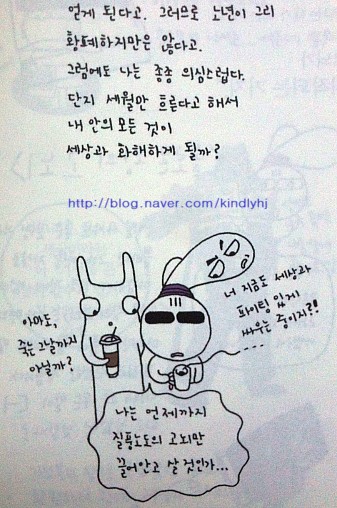 얻게 된다고. 그러므로 노년이 그리
황폐하지만은 않다고.
그럼에도 나는 종종 의심스럽다.
단지 세월만 흐른다고 해서
내 안의 모든 것이
세상과 화해하게 될까?
http://blog.naver.com/kindlyhj
너 지금도 세상과
파이팅 있게
싸우는 중이지?!
아마도,
죽는 그날까지
아닐까?
나는 언제까지
질풍노도의 고뇌만
끌어안고 살 것인가...